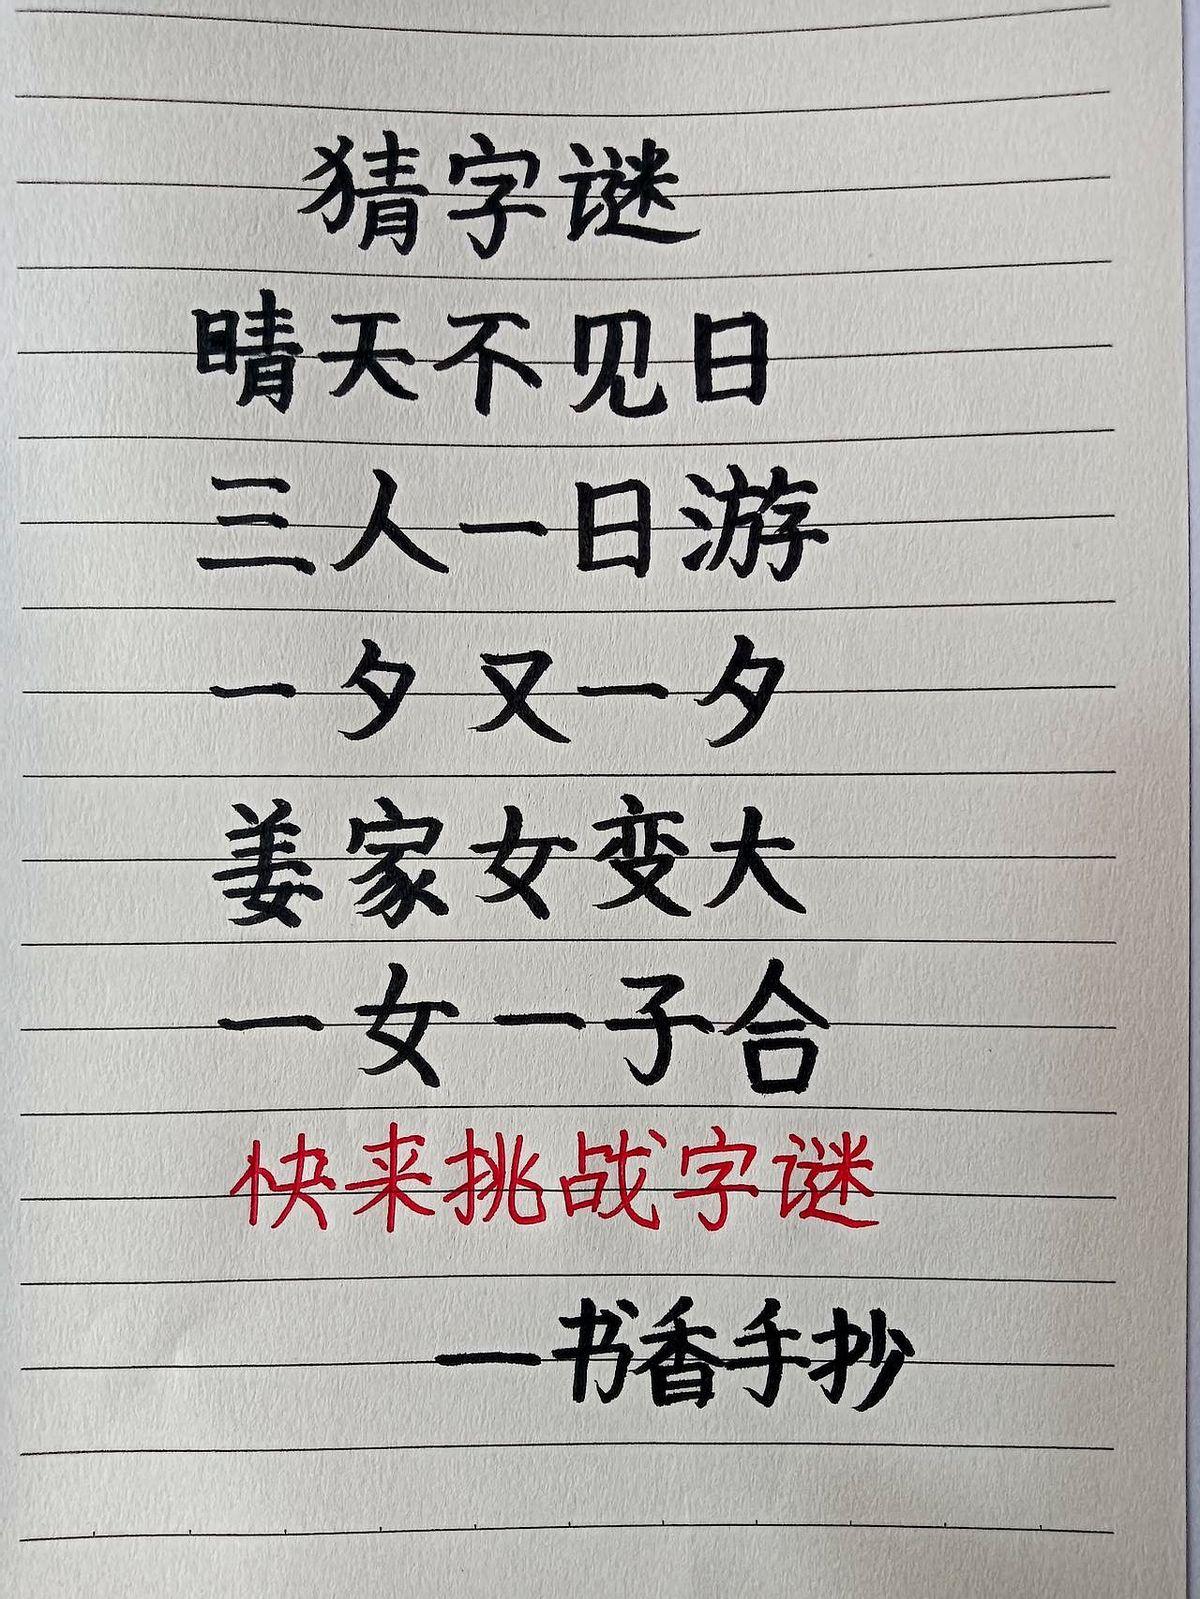 猜字谜
晴天不见日
三人一日游
一夕又一夕
姜家女变大
一女一子合
快来挑战字谜
—书香手抄